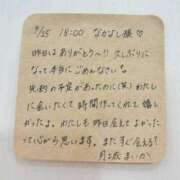 9/25 18:00 なかよし様♡
昨日はありがとう〜!! 久しぶりに
なって本当にごめんなさい💦
先約の予定があったのに(笑)わたし
に会いたくて時間作ってくれて嬉し
かったよ。わたしも昨日会えてよかった
って心から思います。またすぐ会える?
月城まいか